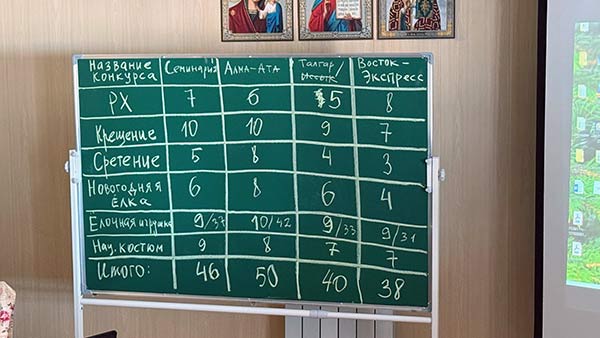 Название конкурса Семинария Алма-Ата Талгар/Иссык Восток-Экспресс
РХ 7 6 5 8
Крещение 10 10 9 7
Сретение 5 8 4 3
Новогодняя ёлка 6 8 6 4
Ёлочная игрушка 9/37 10/42 9/33 9/31
Нац. костюм 9 8 7 7
Итого: 46 50 40 38